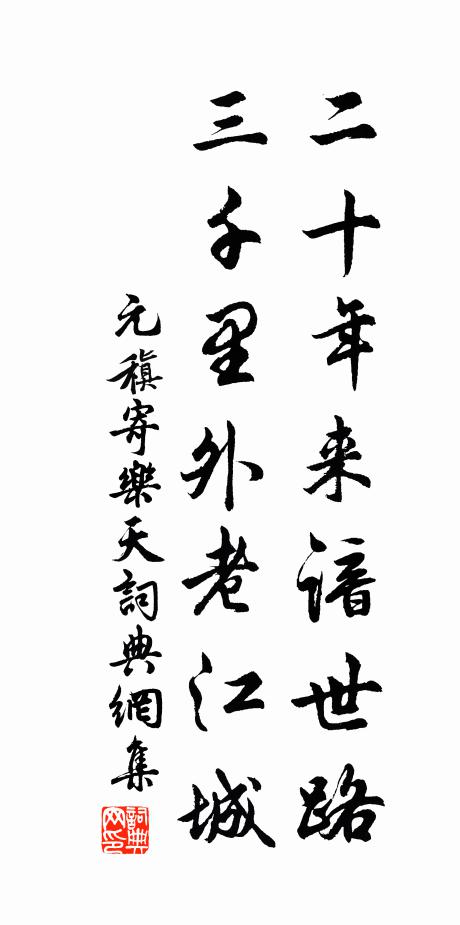 二十年来諳世路
三千里外老江城
元稹寄樂天詞典網集
詞典網印